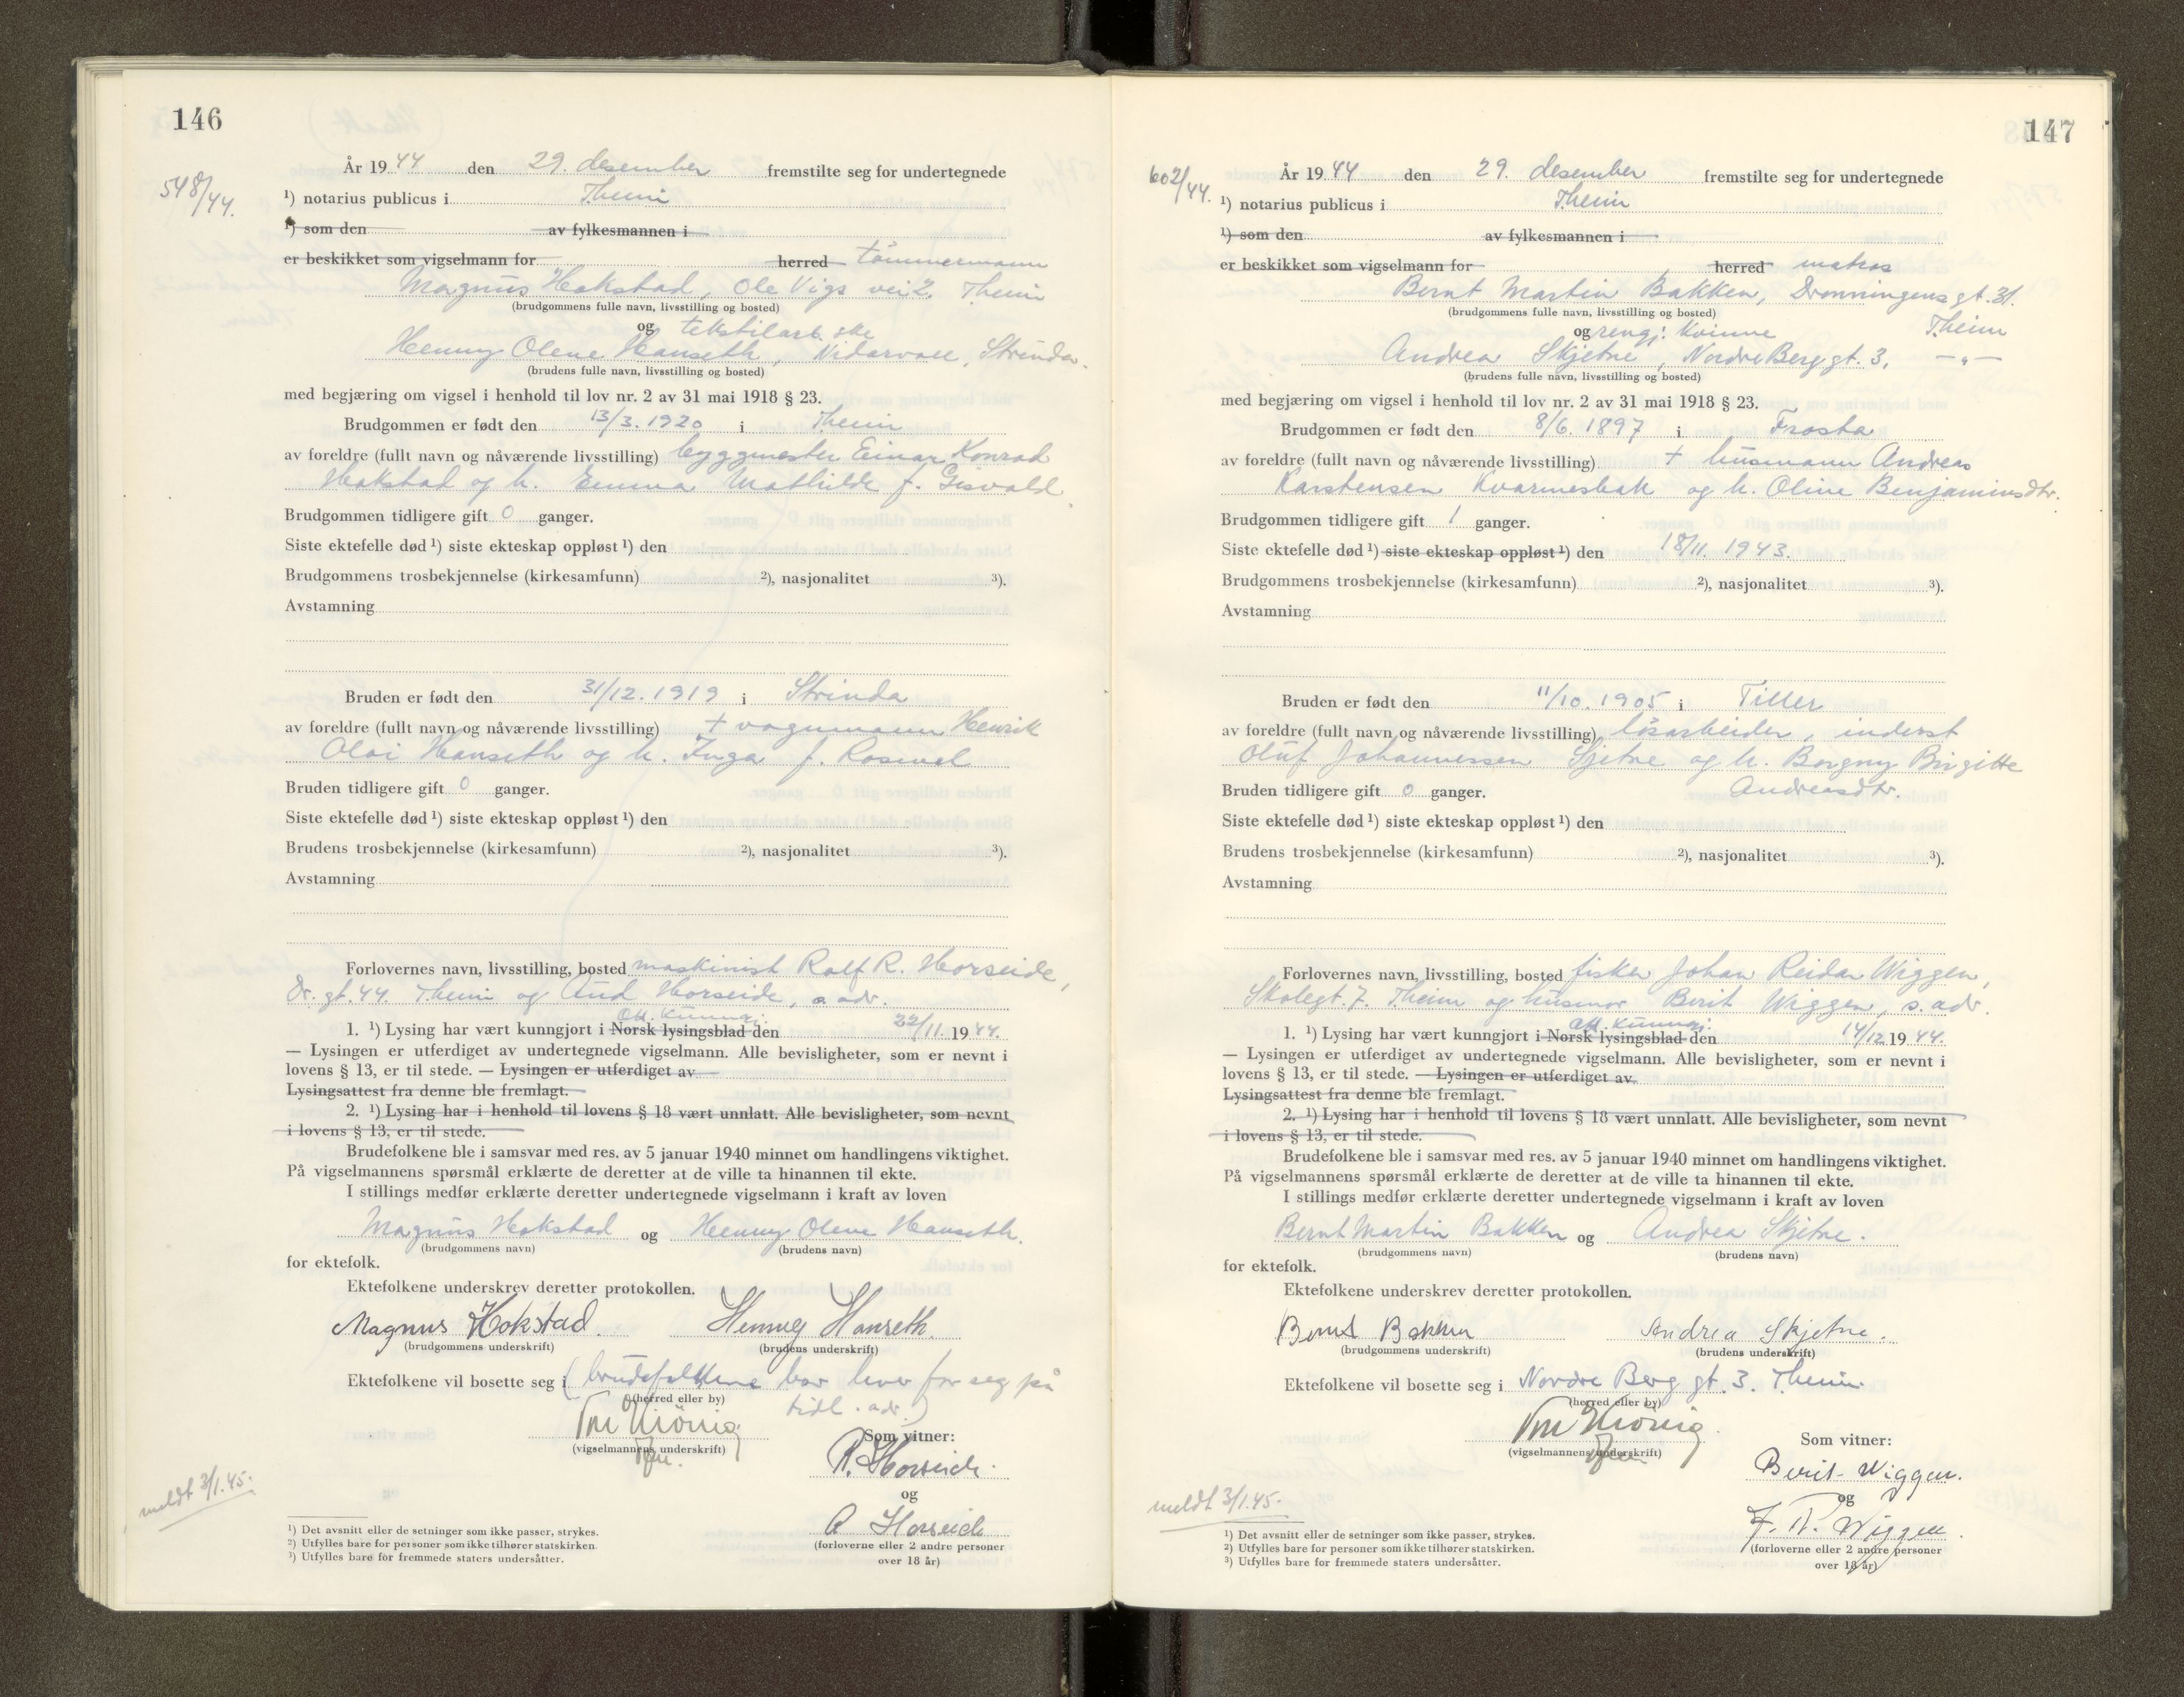 146
548/44.
År 1944 den 29. desember fremstilte seg for undertegnede
¹) notarius publicus i Theim
¹) som den av fylkesmannen i
er beskikket som vigselmann for herred tömmermann
Magnus Hokstad, Ole Vigs vei 2, Theim
(brudgommens fulle navn, livsstilling og bosted)
og tekstilarb.ske
Henny Olene Hanseth, Nidarvoll, Strinda.
(brudens fulle navn, livsstilling og bosted)
med begjæring om vigsel i henhold til lov nr. 2 av 31 mai 1918 § 23.
Brudgommen er født den 13/3. 1920 i Theim
av foreldre (fullt navn og nåværende livsstilling) byggmester Einar Konrad
Hokstad og h. Emma Mathilde f. Gisvold.
Brudgommen tidligere gift 0 ganger.
Siste ektefelle død ¹) siste ekteskap oppløst ¹) den
Brudgommens trosbekjennelse (kirkesamfunn) ²), nasjonalitet ³).
Avstamning
Bruden er født den 31/12. 1919 i Strinda
av foreldre (fullt navn og nåværende livsstilling) + vognmann Henrik
Olai Hanseth og h. Inga f. Rosvol
Bruden tidligere gift 0 ganger.
Siste ektefelle død ¹) siste ekteskap oppløst ¹) den
Brudens trosbekjennelse (kirkesamfunn) ²), nasjonalitet ³).
Avstamning
Forlovernes navn, livsstilling, bosted maskinist Rolf R. Horseide,
Dr. gt. 44. Theim og Aud Horseide, s. adr.
Off. kunngj.
1. ¹) Lysing har vært kunngjort i Norsk lysingsblad den 22/11. 1944.
— Lysingen er utferdiget av undertegnede vigselmann. Alle bevisligheter, som er nevnt i
lovens § 13, er til stede. — Lysingen er utferdiget av
Lysingsattest fra denne ble fremlagt.
2. ¹) Lysing har i henhold til lovens § 18 vært unnlatt. Alle bevisligheter, som nevnt
i lovens § 13, er til stede.
Brudefolkene ble i samsvar med res. av 5 januar 1940 minnet om handlingens viktighet.
På vigselmannens spørsmål erklærte de deretter at de ville ta hinannen til ekte.
I stillings medfør erklærte deretter undertegnede vigselmann i kraft av loven
Magnus Hokstad og Henny Olene Hanseth.
(brudgommens navn) (brudens navn)
for ektefolk.
Ektefolkene underskrev deretter protokollen.
Magnus Hokstad. Henny Hanseth.
(brudgommens underskrift) (brudens underskrift)
Ektefolkene vil bosette seg i (brudefolkene bor hver for seg på
(herred eller by) tidl. adr.)
(vigselmannens underskrift) Som vitner:
R. Horseide.
og
A Horseide
(forloverne eller 2 andre personer
over 18 år)
meldt 3/1.45.
¹) Det avsnitt eller de setninger som ikke passer, strykes.
²) Utfylles bare for personer som ikke tilhører statskirken.
³) Utfylles bare for fremmede staters undersåtter.
147
602/44.
År 1944 den 29. desember fremstilte seg for undertegnede
¹) notarius publicus i Theim
¹) som den av fylkesmannen i
er beskikket som vigselmann for herred matros
Bernt Martin Bakken, Dronningens gt. 31.
(brudgommens fulle navn, livsstilling og bosted)
og rengj. kvinne Theim
Andrea Skjetne, Nordre Berg gt. 3, —"—
(brudens fulle navn, livsstilling og bosted)
med begjæring om vigsel i henhold til lov nr. 2 av 31 mai 1918 § 23.
Brudgommen er født den 8/6. 1897 i Frosta
av foreldre (fullt navn og nåværende livsstilling) + husmann Andreas
Karstensen Kvarmesbak og h. Oline Benjaminsdtr.
Brudgommen tidligere gift 1 ganger.
Siste ektefelle død ¹) siste ekteskap oppløst ¹) den 18/11. 1943.
Brudgommens trosbekjennelse (kirkesamfunn) ²), nasjonalitet ³).
Avstamning
Bruden er født den 11/10. 1905 i Tiller
av foreldre (fullt navn og nåværende livsstilling) lösarbeider, inderst
Oluf Johannessen Skjetne og h. Borgny Birgitte
Bruden tidligere gift 0 ganger. Andreasdtr.
Siste ektefelle død ¹) siste ekteskap oppløst ¹) den
Brudens trosbekjennelse (kirkesamfunn) ²), nasjonalitet ³).
Avstamning
Forlovernes navn, livsstilling, bosted fisker Johan Reidar Wiggen,
Skolegt. 7. Theim og husmor Berit Wiggen, s. adr.
Off. kunngj.
1. ¹) Lysing har vært kunngjort i Norsk lysingsblad den 14/12 1944.
— Lysingen er utferdiget av undertegnede vigselmann. Alle bevisligheter, som er nevnt i
lovens § 13, er til stede. — Lysingen er utferdiget av
Lysingsattest fra denne ble fremlagt.
2. ¹) Lysing har i henhold til lovens § 18 vært unnlatt. Alle bevisligheter, som nevnt
i lovens § 13, er til stede.
Brudefolkene ble i samsvar med res. av 5 januar 1940 minnet om handlingens viktighet.
På vigselmannens spørsmål erklærte de deretter at de ville ta hinannen til ekte.
I stillings medfør erklærte deretter undertegnede vigselmann i kraft av loven
Bernt Martin Bakken og Andrea Skjetne.
(brudgommens navn) (brudens navn)
for ektefolk.
Ektefolkene underskrev deretter protokollen.
Bernt Bakken Andrea Skjetne.
(brudgommens underskrift) (brudens underskrift)
Ektefolkene vil bosette seg i Nordre Berg gt. 3. Theim
(herred eller by)
(vigselmannens underskrift) Som vitner:
Berit Wiggen.
og
J. R. Wiggen.
(forloverne eller 2 andre personer
over 18 år)
meldt 3/1.45.
¹) Det avsnitt eller de setninger som ikke passer, strykes.
²) Utfylles bare for personer som ikke tilhører statskirken.
³) Utfylles bare for fremmede staters undersåtter.